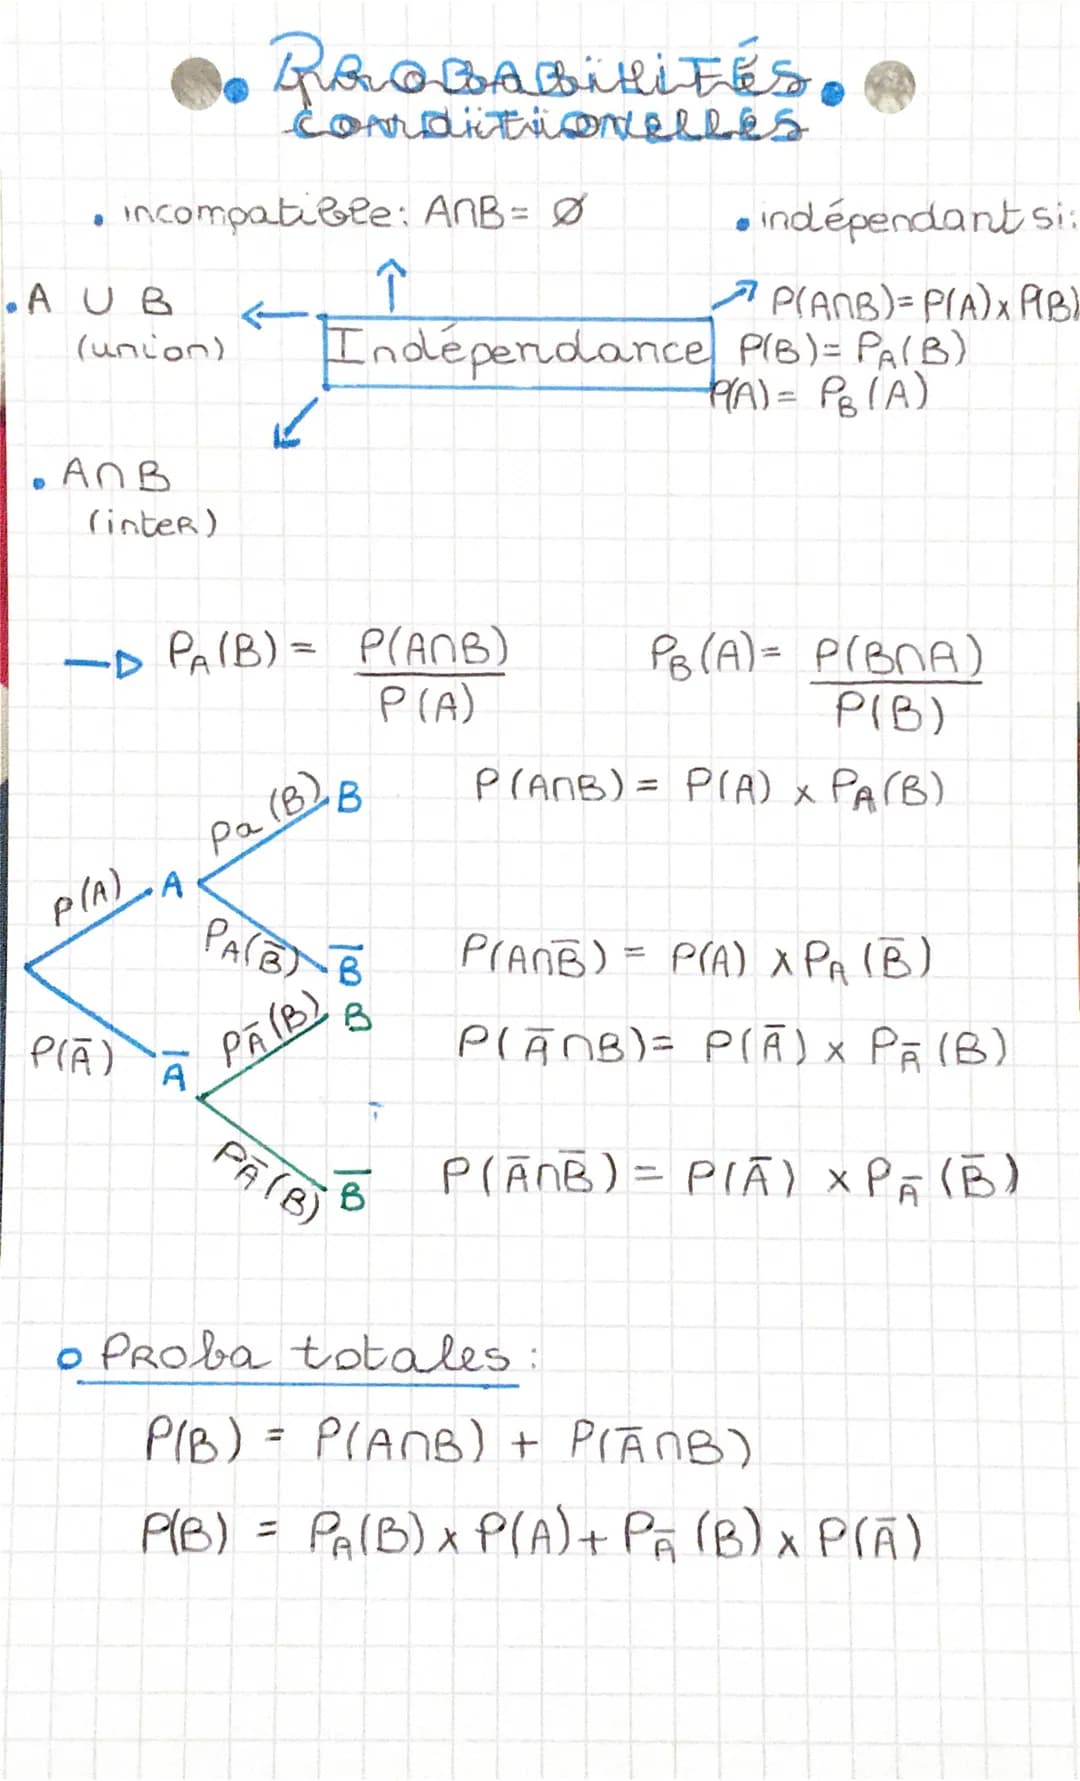 PROBABILITÉS
conditionelles
• incompatible: A∩B = Ø
• indépendant si:
• A U B
(union)
Indépendance
P(A∩B) = P(A) x P(B)
P(B) = PA(B)
P(A) = PB(A)
• A∩B
(inter)
PA(B) = P(A∩B) / P(A)
PB(A) = P(B∩A) / P(B)
pa(B) B
P(A∩B) = P(A) x PA(B)
p(A) A
PA(B̅) B̅
P(A∩B̅) = P(A) x PA(B̅)
PA̅(B) B
P(A̅) A̅
P(A̅∩B) = P(A̅) x PA̅(B)
PA̅(B) B̅
P(A̅∩B̅) = P(A̅) x PA̅(B̅)
o Proba totales :
P(B) = P(A∩B) + P(A̅∩B)
P(B) = PA(B) x P(A) + PA̅(B) x P(A̅)